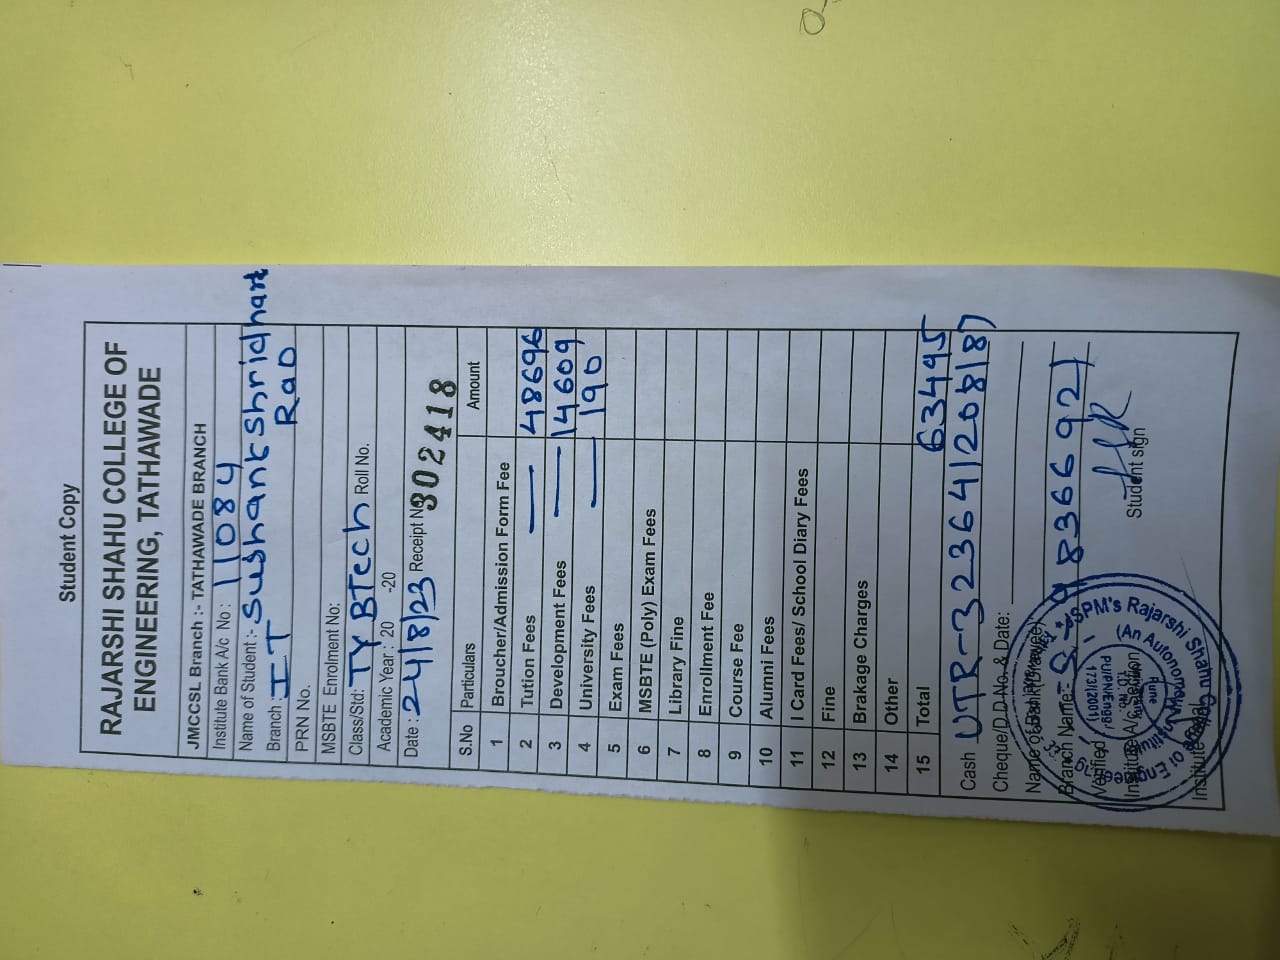 Student Copy
RAJARSHI SHAHU COLLEGE OF
ENGINEERING, TATHAWADE
JMCCSL Branch :- TATHAWADE BRANCH
Institute Bank A/c No : 11084
Name of Student:- Sushant Shridhar
Branch : IT Rao
PRN No.
MSBTE Enrolment No:
Class/Std: TY BTech Roll No.
Academic Year : 20 -20
Date : 24/8/23 Receipt No 302418
S.No Particulars Amount
1 Broucher/Admission Form Fee
2 Tution Fees — 48696
3 Development Fees — 14609
4 University Fees — 190
5 Exam Fees
6 MSBTE (Poly) Exam Fees
7 Library Fine
8 Enrollment Fee
9 Course Fee
10 Alumni Fees
11 I Card Fees/ School Diary Fees
12 Fine
13 Brakage Charges
14 Other
15 Total 63495
Cash UTR-323641208187
Cheque/D.D.No. & Date:
Name of Bank(Drawee)
Branch Name:- 9836692)
Verified
Institute A/c Section
Student sign
Institute
JSPM's Rajarshi Shahu College of Engineering
(An Autonomous Institute)
Pune